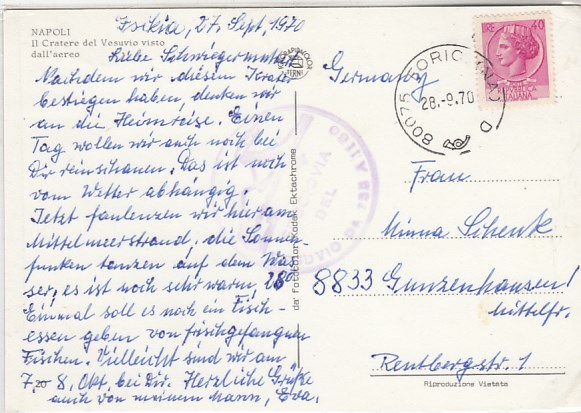 NAPOLI
Il Cratere del Vesuvio visto
dall'aereo
Ischia, 27. Sept. 1970
Liebe Schwiegermutter!
Nachdem wir diesen Krater
bestiegen haben, denken wir
an die Heimreise. Einen
Tag wollen wir auch noch bei
Dir reinschauen. Das ist noch
vom Wetter abhängig.
Jetzt faulenzen wir hier am
Mittelmeerstrand, die Sonnen-
funken tanzen auf dem Was-
ser, es ist noch sehr warm, 28°
Einmal soll es noch ein Fisch-
essen geben von frischgefangnen
Fischen. Vielleicht sind wir am
7. 8. Okt. bei Dir. Herzliche Grüße
auch von meinem Mann, Eva.
20
da Fotocolor Kodak Ektachrome
40
28.-9.70
80075
Germany
Frau
Minna Schenk
8833 Gunzenhausen!
Mittelfr.
Rentbergstr. 1
Riproduzione Vietata